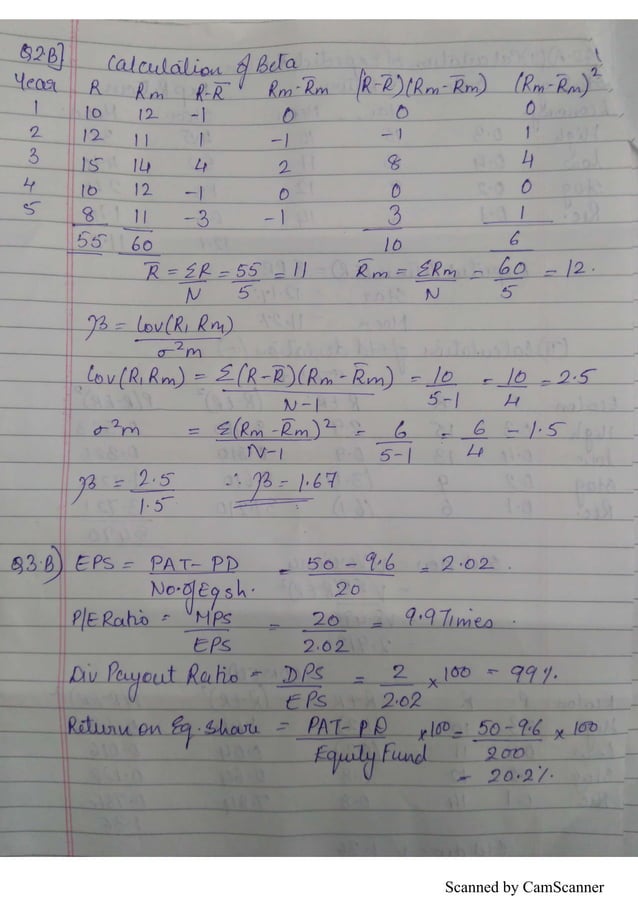 Q2B] Calculation of Beta
Year R Rm R-R̅ Rm-R̅m (R-R̅)(Rm-R̅m) (Rm-R̅m)²
1 10 12 -1 0 0 0
2 12 11 1 -1 -1 1
3 15 14 4 2 8 4
4 10 12 -1 0 0 0
5 8 11 -3 -1 3 1
55 60 10 6
R̅ = ΣR/N = 55/5 = 11 R̅m = ΣRm/N = 60/5 = 12.
β = Cov(R, Rm)/σ²m
Cov(R, Rm) = Σ(R-R̅)(Rm-R̅m)/N-1 = 10/5-1 = 10/4 = 2.5
σ²m = Σ(Rm-R̅m)²/N-1 = 6/5-1 = 6/4 = 1.5
β = 2.5/1.5 ∴ β = 1.67
Q3.B) EPS = PAT-PD/No.of Eq sh. = 50-9.6/20 = 2.02.
P/E Ratio = MPS/EPS = 20/2.02 = 9.9 Times.
Div Payout Ratio = DPS/EPS = 2/2.02 x 100 = 99%.
Return on Eq. share = PAT-PD/Equity Fund x100 = 50-9.6/200 x 100
= 20.2%
Scanned by CamScanner